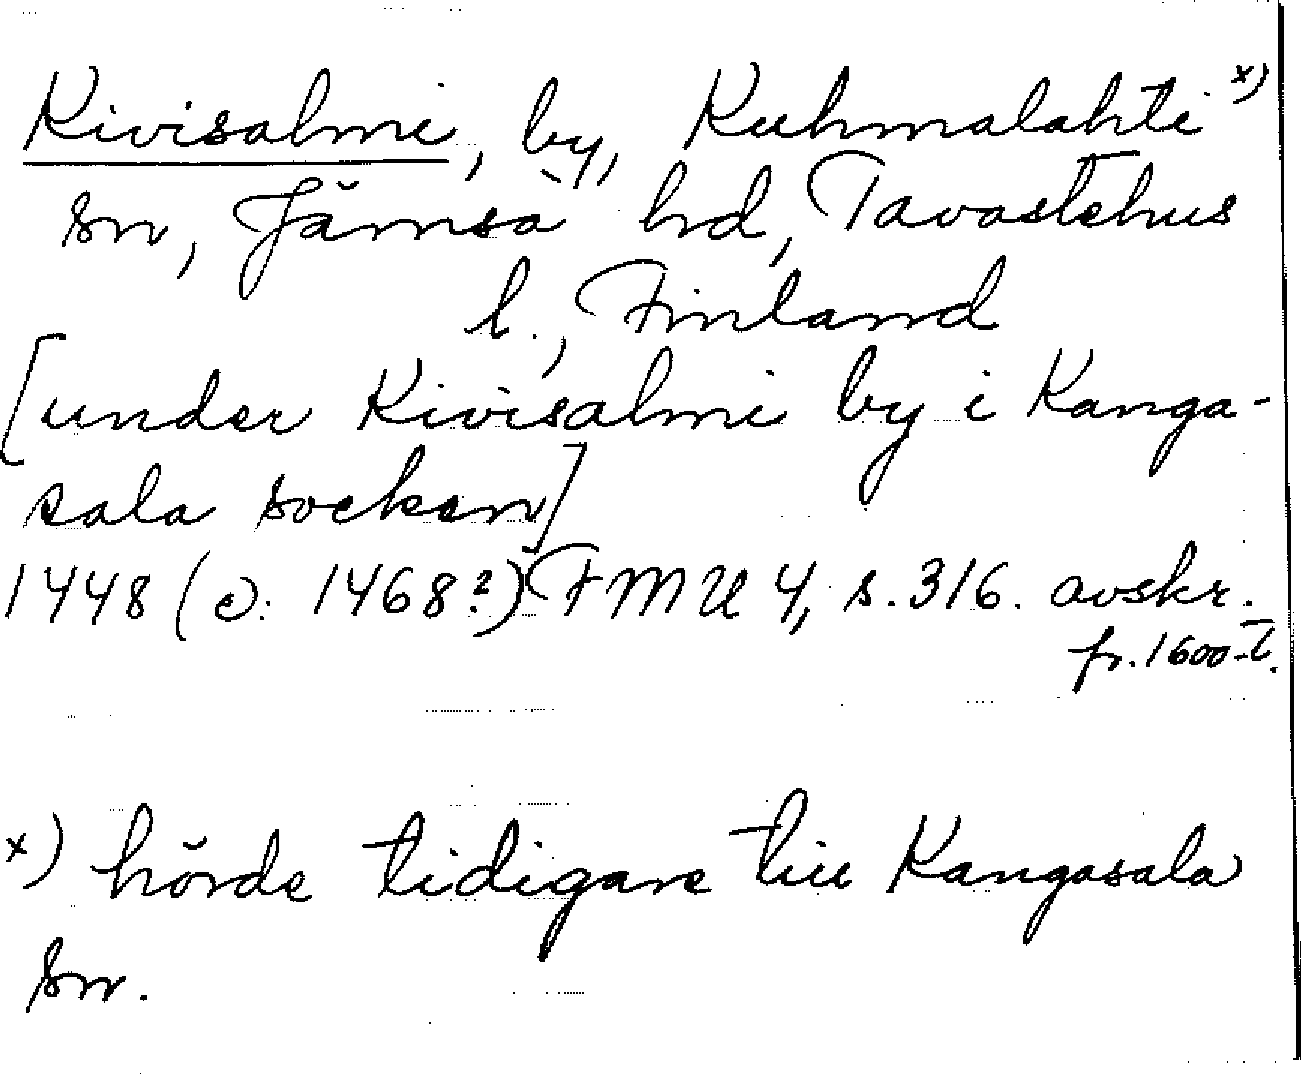 Kivisalmi, by, Kuhmalahti x)
sn, Jämsä hd, Tavastehus
l., Finland
[under Kivisalmi by i Kanga-
sala socken]
1448 (o. 1468?) FMU 4, s. 316. avskr.
fr. 1600-t.
x) hörde tidigare till Kangasala
sn.